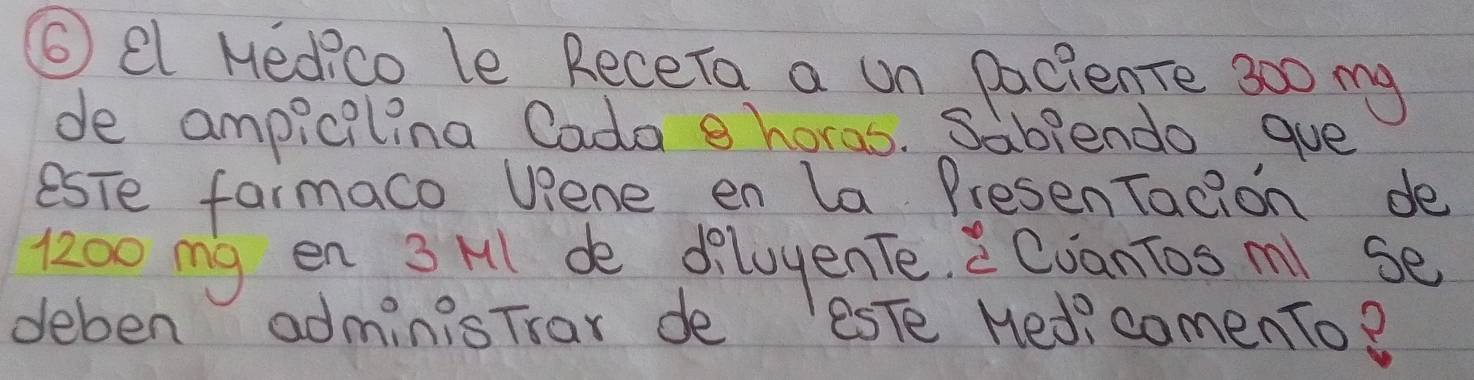 ⑥ El Médico le Receta a un paciente 300 mg
de ampicilina Cada 8 horas. Sabiendo que
este farmaco Viene en la Presentación de
1200 mg en 3 Ml de diluyente. ¿Cuántos ml se
deben administrar de este Medicamento?